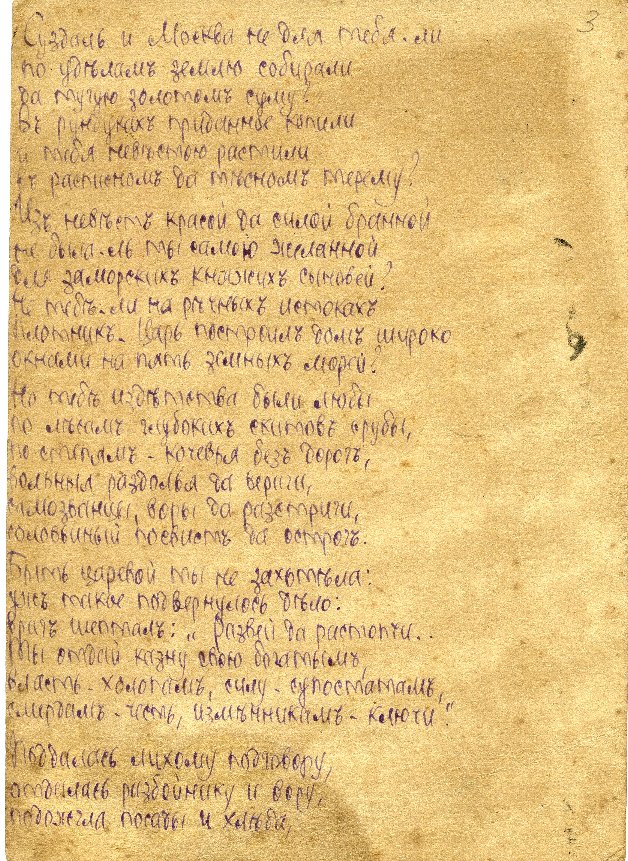 3
Суздаль и Москва не для тебя-ли
по удѣламъ землю собирали
да тугую золотомъ суму?
Въ рундукахъ приданное копили
и тебя невѣстою растили
въ расписномъ да тѣсномъ терему?
Изъ невѣстъ красой да силой бранной
не была-ль ты самою желанной
для заморскихъ княжихъ сыновей?
Не тебѣ-ли на рѣчныхъ истокахъ
Плотникъ-Царь построилъ домъ широко
окнами на пять земныхъ морей?
Но тебѣ издѣтства были любы
по лѣсамъ глубокихъ скитовъ срубы,
по степямъ - кочевья безъ дорогъ,
вольныя раздолья да вериги,
самозванцы, воры да разстриги,
соловьиный посвистъ да острогъ.
Быть царевой ты не захотѣла:
ужъ такое подвернулось дѣло:
врагъ шепталъ: „Развей да расточи..
Ты отдай казну свою богатымъ,
власть - холопамъ, силу - супостатамъ,
смердамъ - честь, измѣнникамъ - ключи."
Поддалась лихому подговору,
отдалась разбойнику и вору,
подожгла посады и хлѣба,